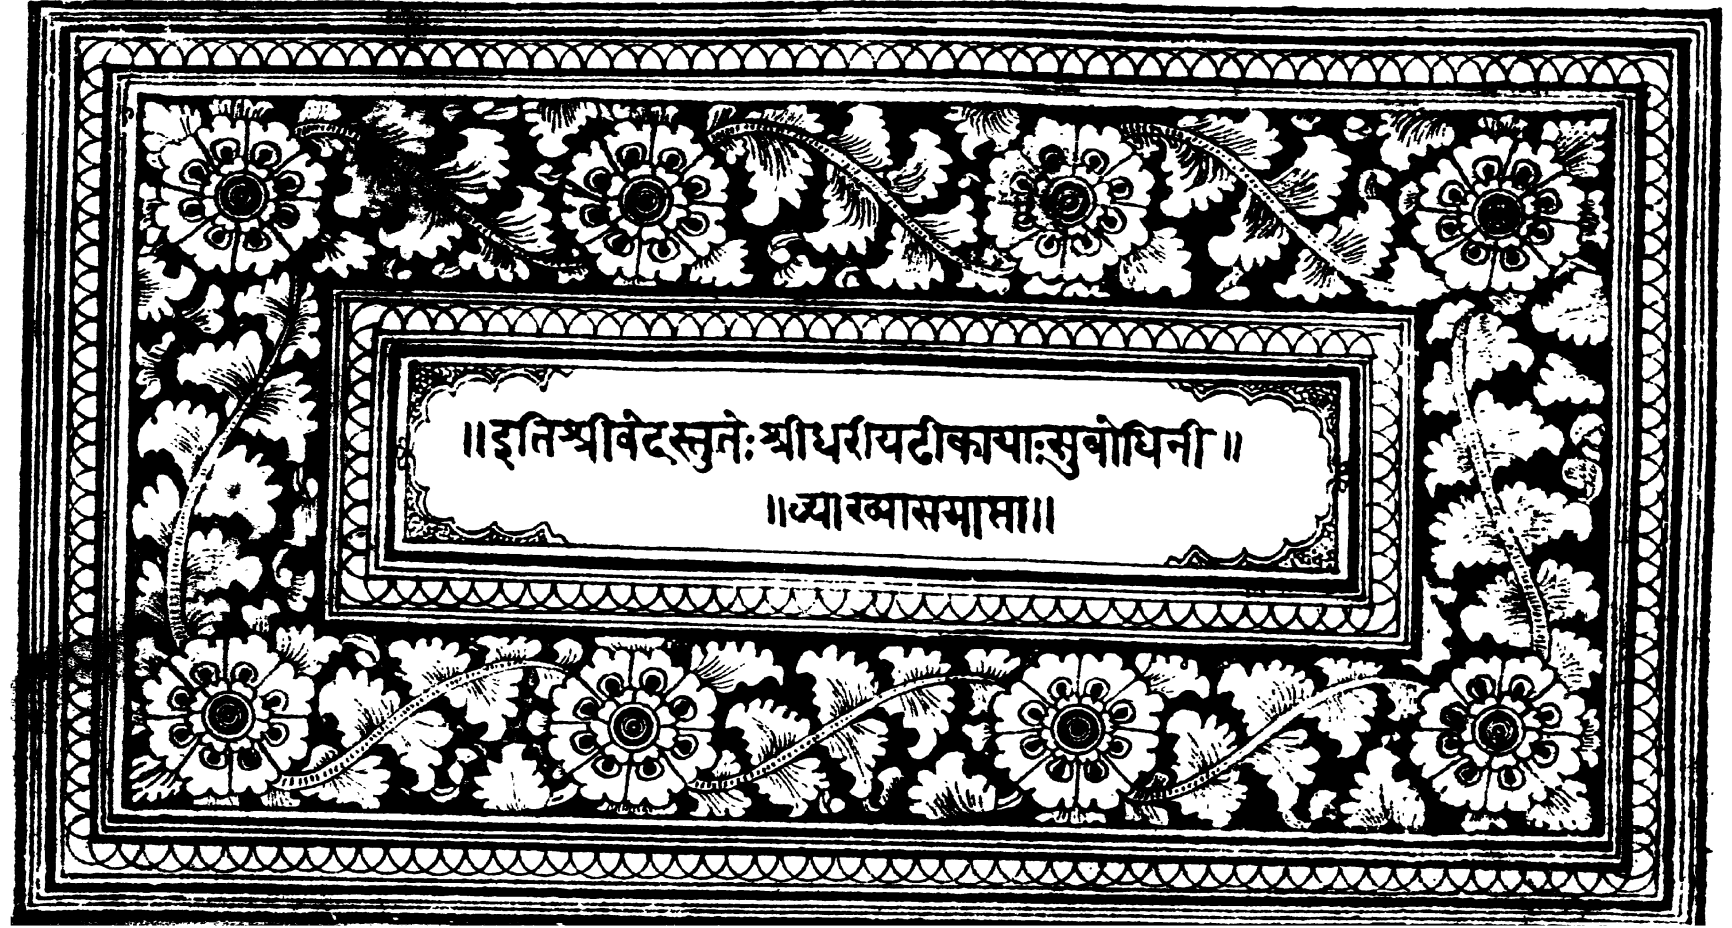 ॥इतिश्रीवेदस्तुतेःश्रीधरीयटीकायाःसुबोधिनी॥
॥व्याख्यासमाप्ता॥